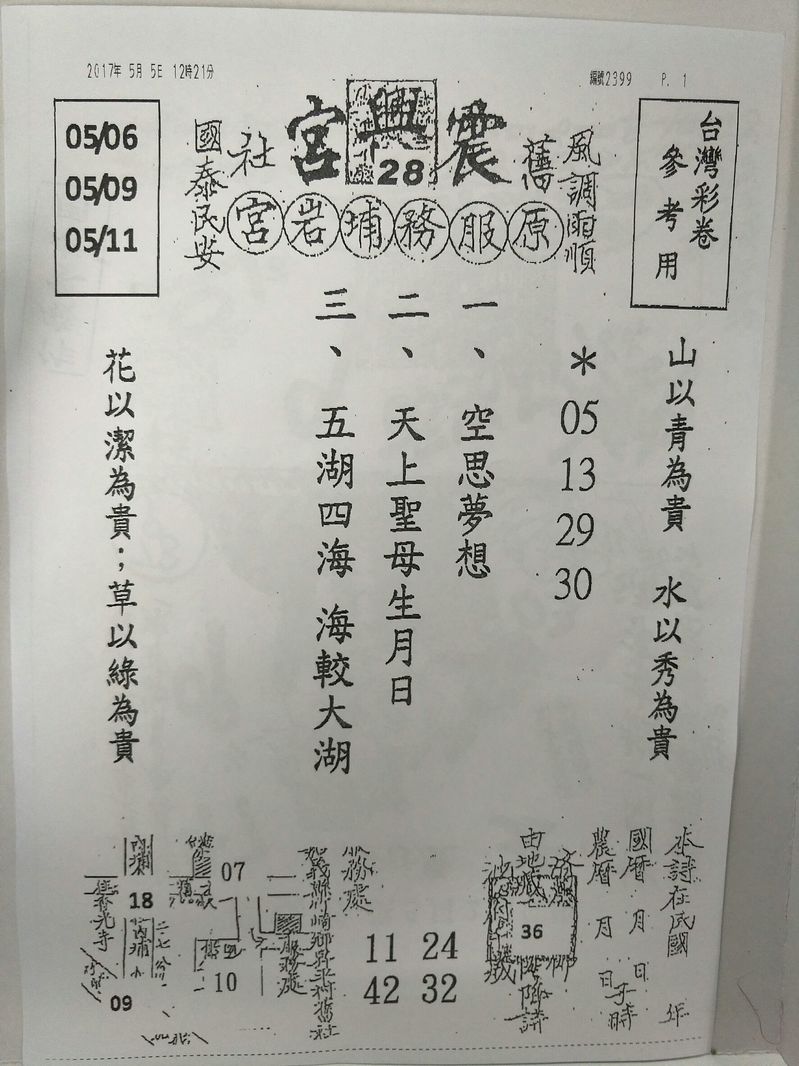 2017年 5月 5日 12時21分
編號2399 P. 1
台灣彩卷
參考用
風調雨順
舊
震興宮
28
社
國泰民安
原服務埔岩宮
05/06
05/09
05/11
山以青為貴 水以秀為貴
*
05
13
29
30
一、空思夢想
二、天上聖母生月日
三、五湖四海 海較大湖
花以潔為貴；草以綠為貴
本詩在民國 年
國曆 月 日
農曆 月 日子時
36
服務處
11 24
42 32
服務處
07
10
18
09